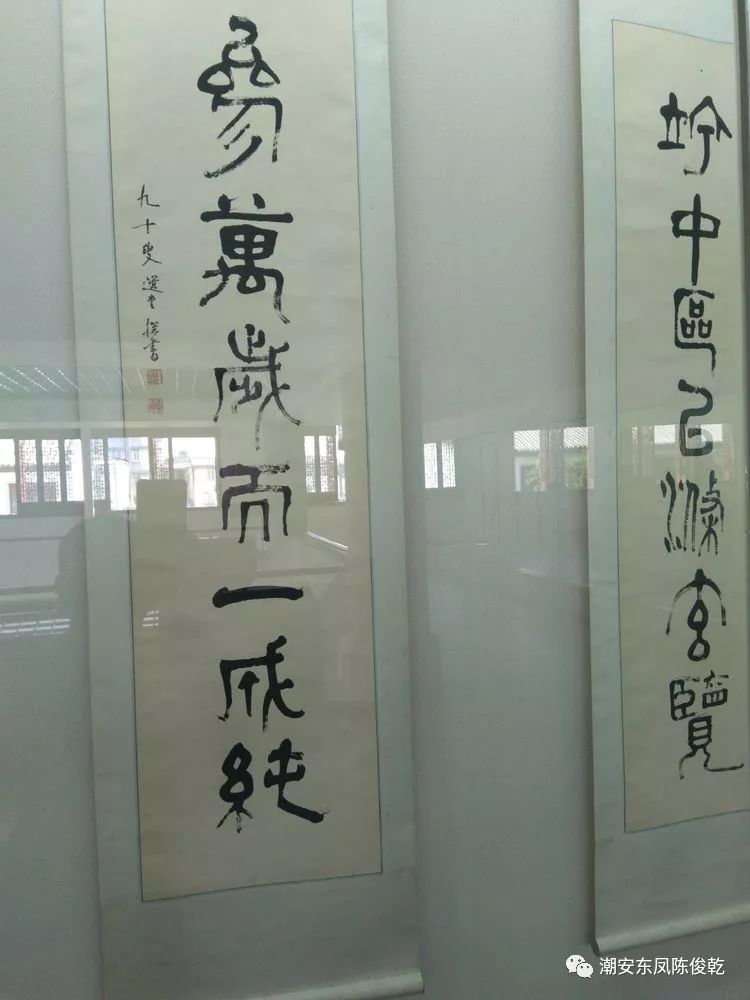 竚中區㠯滌玄覽
參萬歲而一成純
九十叟選堂撰書
潮安东凤陈俊乾